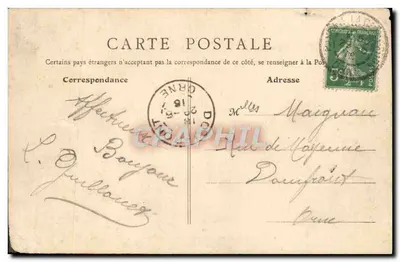 CARTE POSTALE
Certains pays étrangers n'acceptant pas la correspondance de ce côté, se renseigner à la Poste
Correspondance
Adresse
Affectueux
Bonjour
L. Guillouet
Melles Maignan
Rue de Mayenne
Domfront
Orne
ORNE